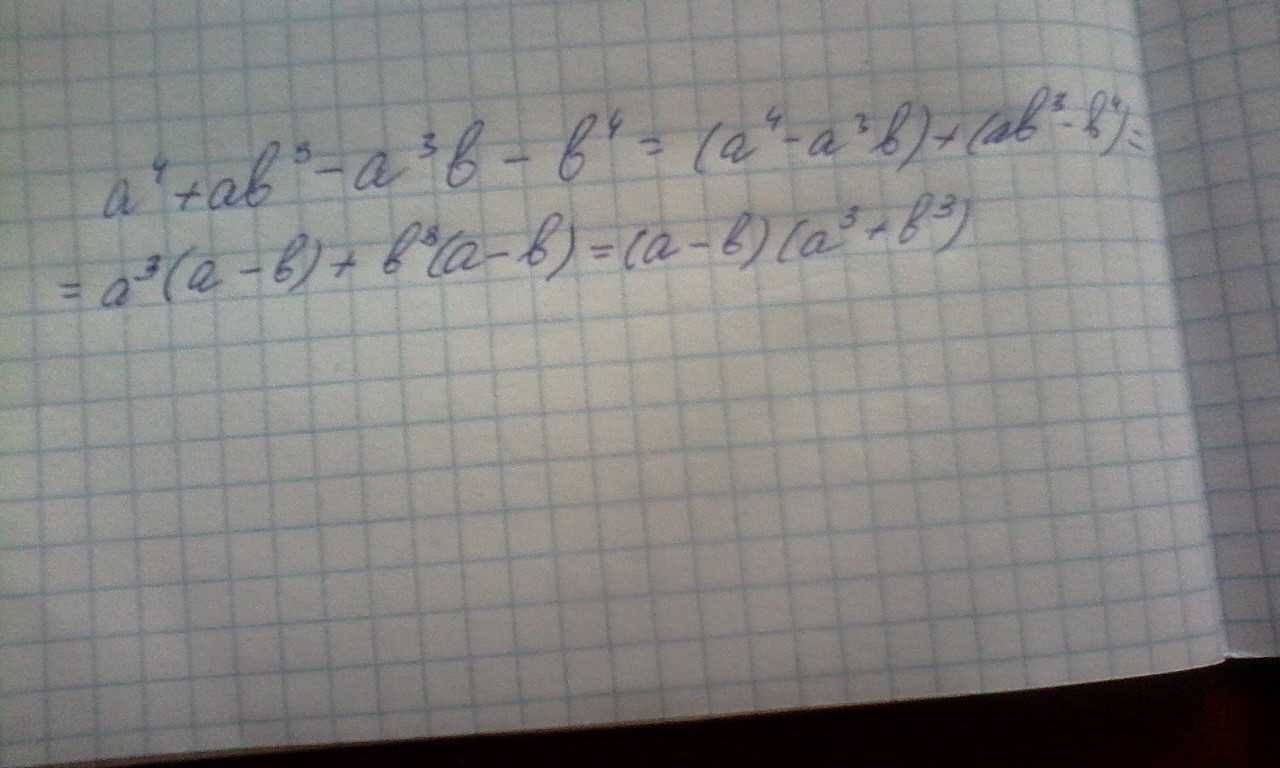 a⁴+ab³-a³b-b⁴=(a⁴-a³b)+(ab³-b⁴)=
=a³(a-b)+b³(a-b)=(a-b)(a³+b³)